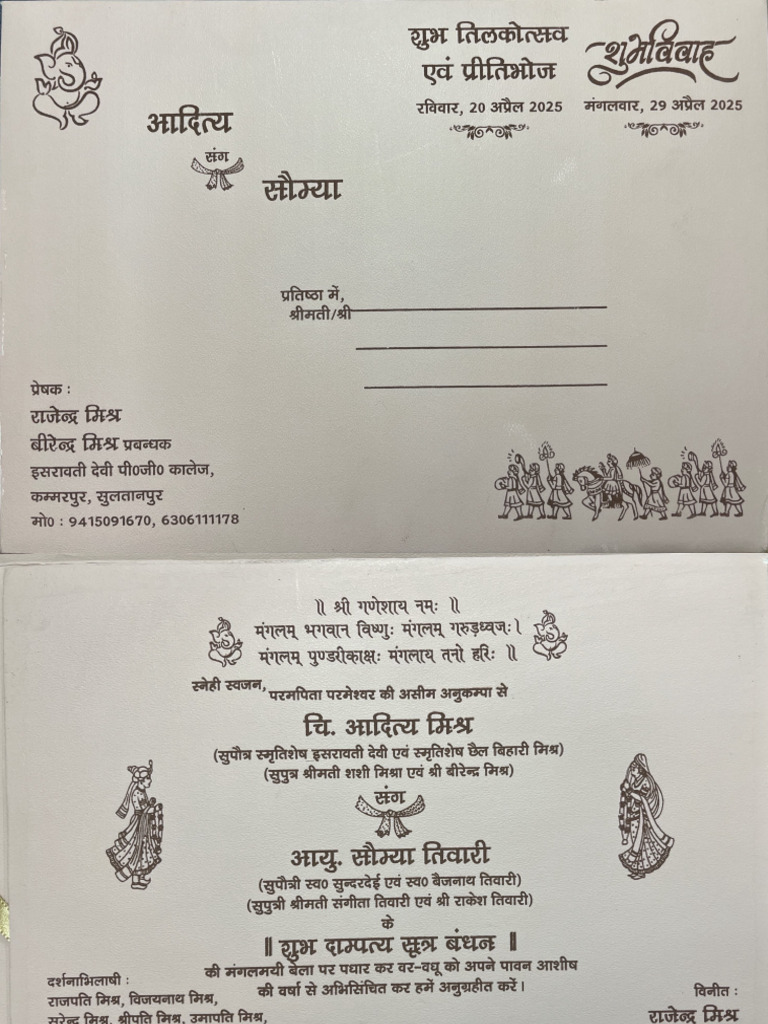 शुभ तिलकोत्सव
एवं प्रीतिभोज
रविवार, 20 अप्रैल 2025
शुभविवाह
मंगलवार, 29 अप्रैल 2025
आदित्य
संग
सौम्या
प्रतिष्ठा में,
श्रीमती/श्री
प्रेषक :
राजेन्द्र मिश्र
बीरेन्द्र मिश्र प्रबन्धक
इसरावती देवी पी0जी0 कालेज,
कम्मरपुर, सुलतानपुर
मो0 : 9415091670, 6306111178
॥ श्री गणेशाय नमः ॥
मंगलम् भगवान विष्णुः मंगलम् गरुड़ध्वजः।
मंगलम् पुण्डरीकाक्षः मंगलाय तनो हरिः ॥
स्नेही स्वजन, परमपिता परमेश्वर की असीम अनुकम्पा से
चि. आदित्य मिश्र
(सुपौत्र स्मृतिशेष इसरावती देवी एवं स्मृतिशेष छैल बिहारी मिश्र)
(सुपुत्र श्रीमती शशी मिश्रा एवं श्री बीरेन्द्र मिश्र)
संग
आयु. सौम्या तिवारी
(सुपौत्री स्व0 सुन्दरदेई एवं स्व0 बैजनाथ तिवारी)
(सुपुत्री श्रीमती संगीता तिवारी एवं श्री राकेश तिवारी)
के
॥ शुभ दाम्पत्य सूत्र बंधन ॥
की मंगलमयी बेला पर पधार कर वर-वधू को अपने पावन आशीष
की वर्षा से अभिसिंचित कर हमें अनुग्रहीत करें।
दर्शनाभिलाषी :
राजपति मिश्र, विजयनाथ मिश्र,
सुरेन्द्र मिश्र, श्रीपति मिश्र, उमापति मिश्र,
विनीत :
राजेन्द्र मिश्र